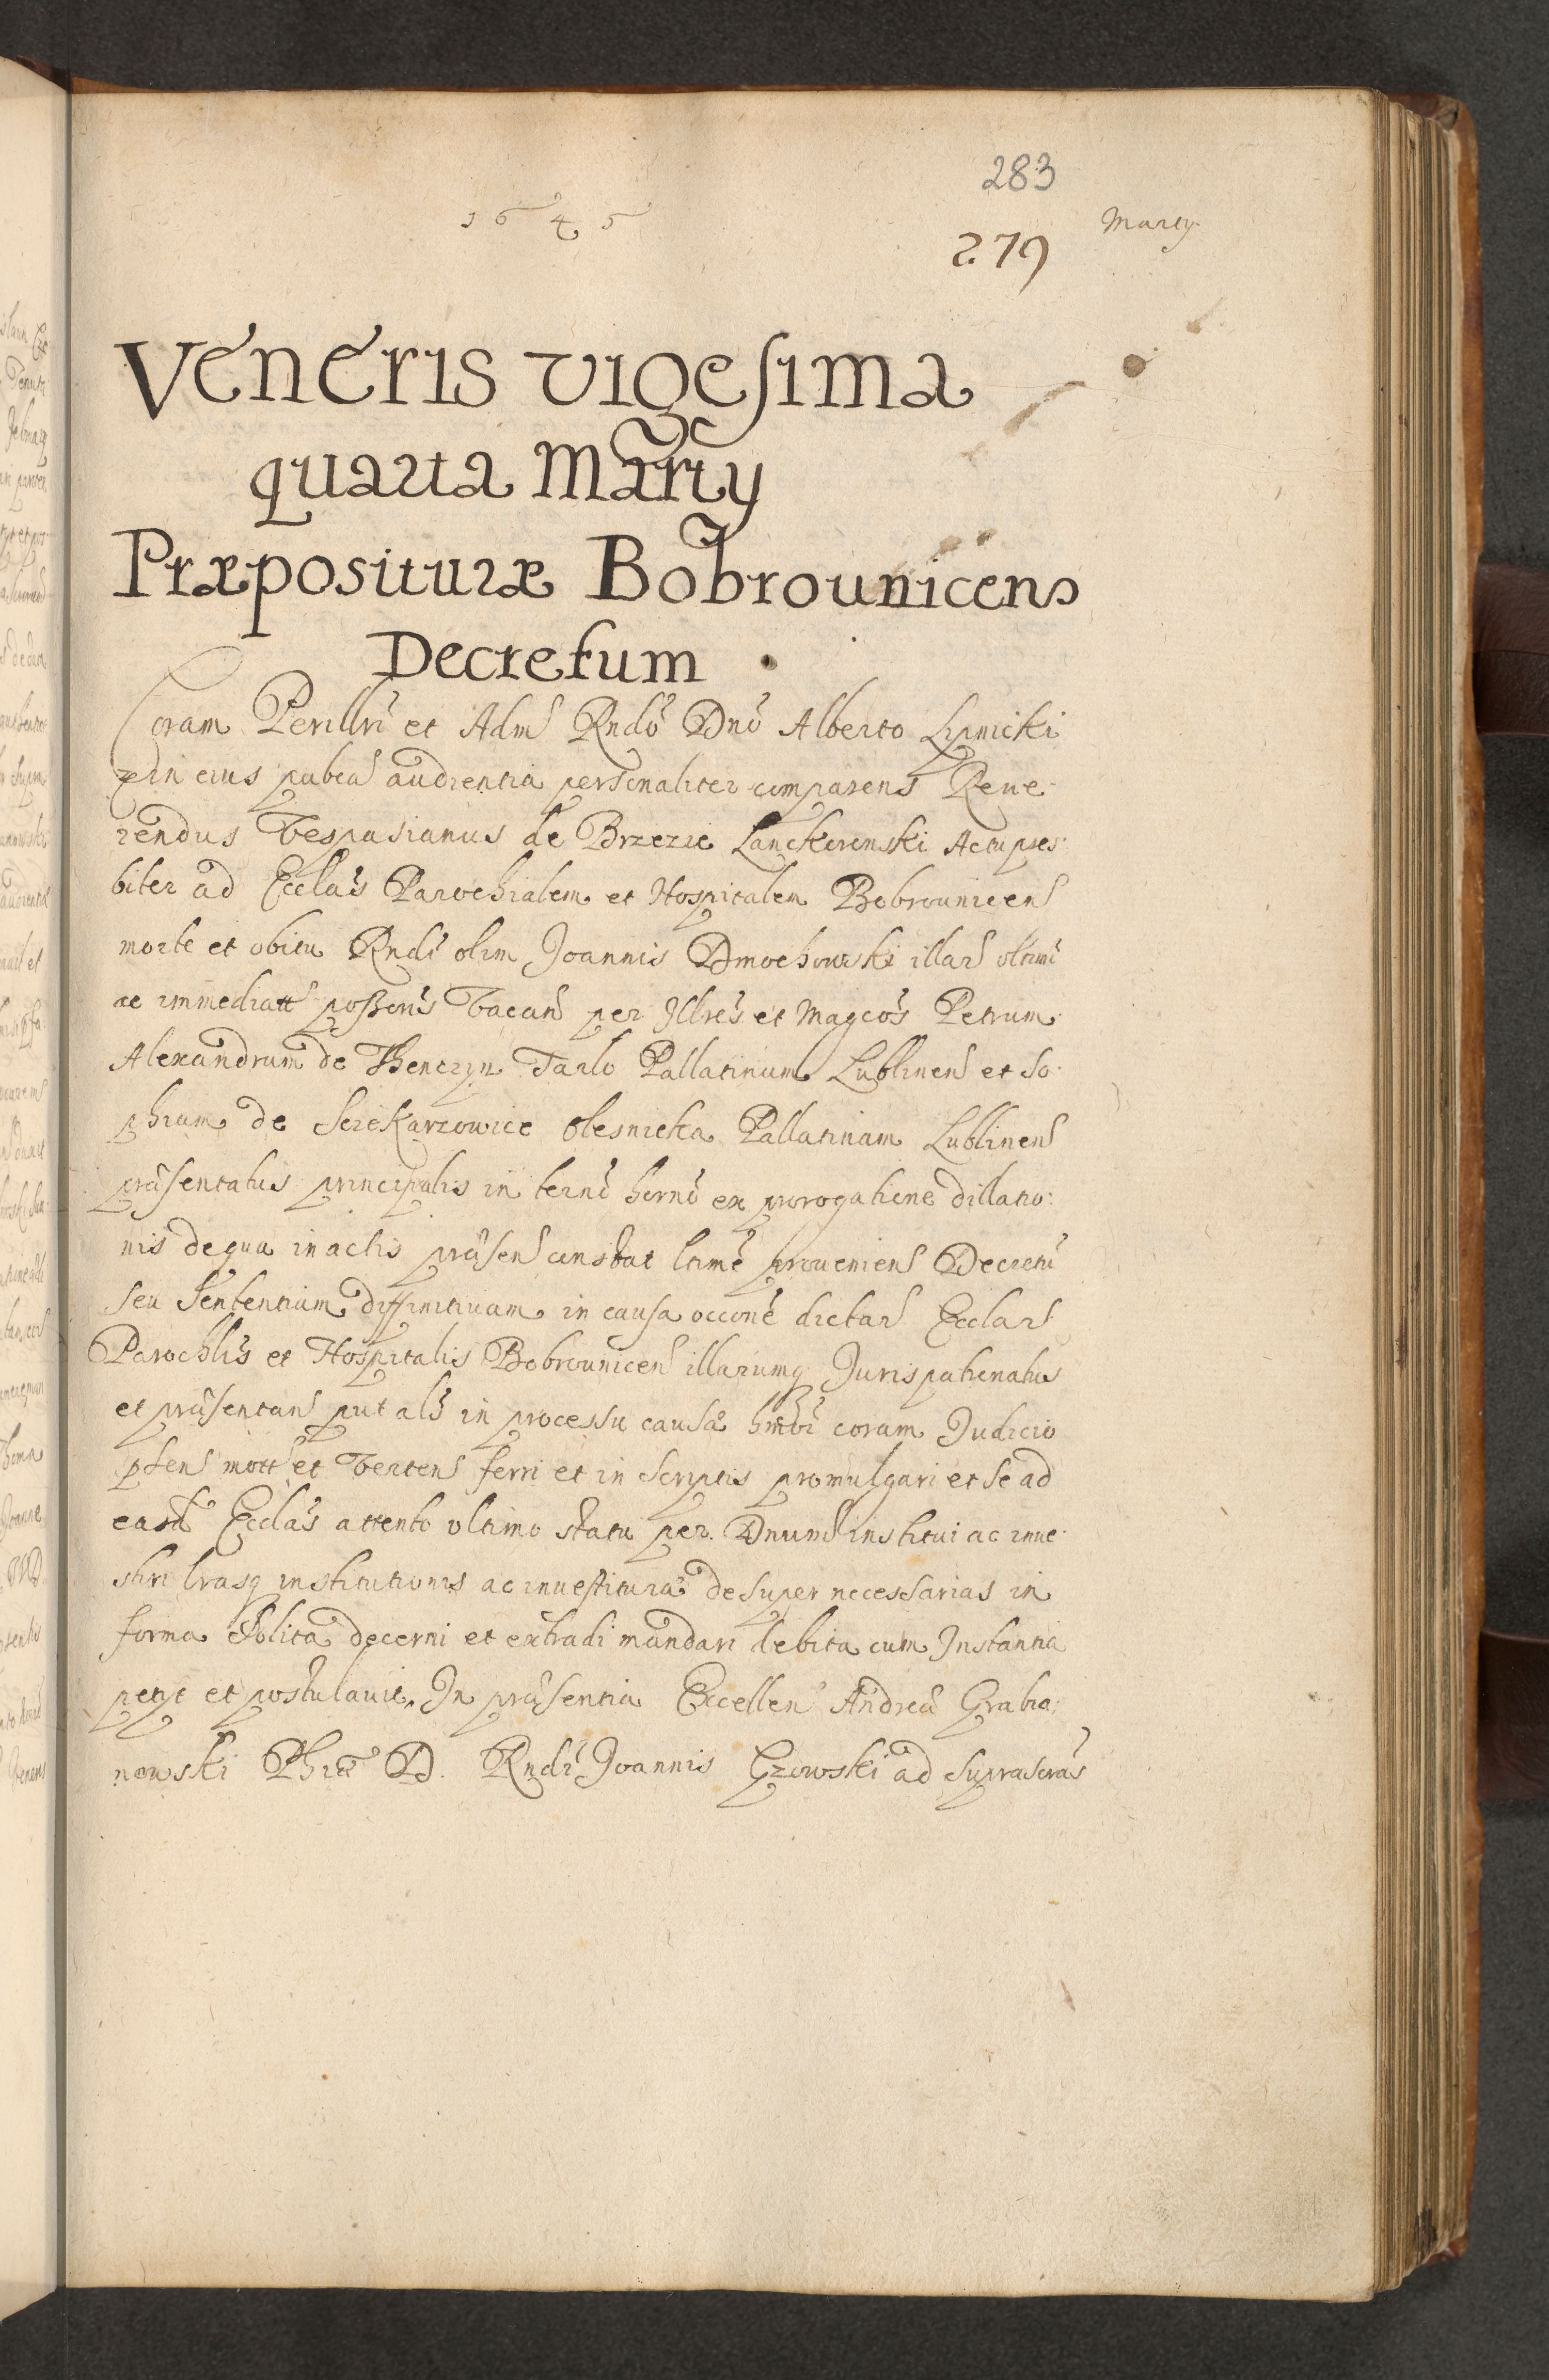 283
1645
Marty
279
Veneris vigesima
quarta Martij
Præposituræ Bobrounicens
Decretum
Coram Perillri et Adm Rndo Dno Alberto Lipnicki
in eius publca audientia personaliter comparens Reue-
rendus Vespasianus de Brzezie Lanckorenski Actu pres:
biter ad Ecclas Parochialem et Hospitalem Bobrounicens
morte et obitu Rndi olim Joannis Dmochowski illar ultimi
ac immediatt possoris vacan per Illres et Magcos Petrum
Alexandrum de Thenczyn Tarlo Pallatinum Lublinens et So:
phiam de Sciekarzowice Olesnicka Pallatinam Lublinens
præsentatus principalis in termo horno ex prorogatione dillatio:
nis de qua in actis præsens constat ltime proueniens Decretu
seu Sententiam diffinitiuam in causa occone dictar Ecclar
Parochlis et Hospitalis Bobrounicens illarumq Jurispatronatus
et præsentan put als in processu causæ hmoi coram Judicio
pten mott et verten ferri et in scriptis promulgari et se ad
easd Ecclas attento ultimo statu per Dnum institui ac inue-
stiri lrasq institutionis ac inuestituræ desuper necessarias in
forma solita decerni et extradi mandari debita cum Instantia
petijt et postulauit. In præsentia Excellen Andreæ Grabia:
nowski Phiæ D. Rndi Joannis Gzowski ad suprascras